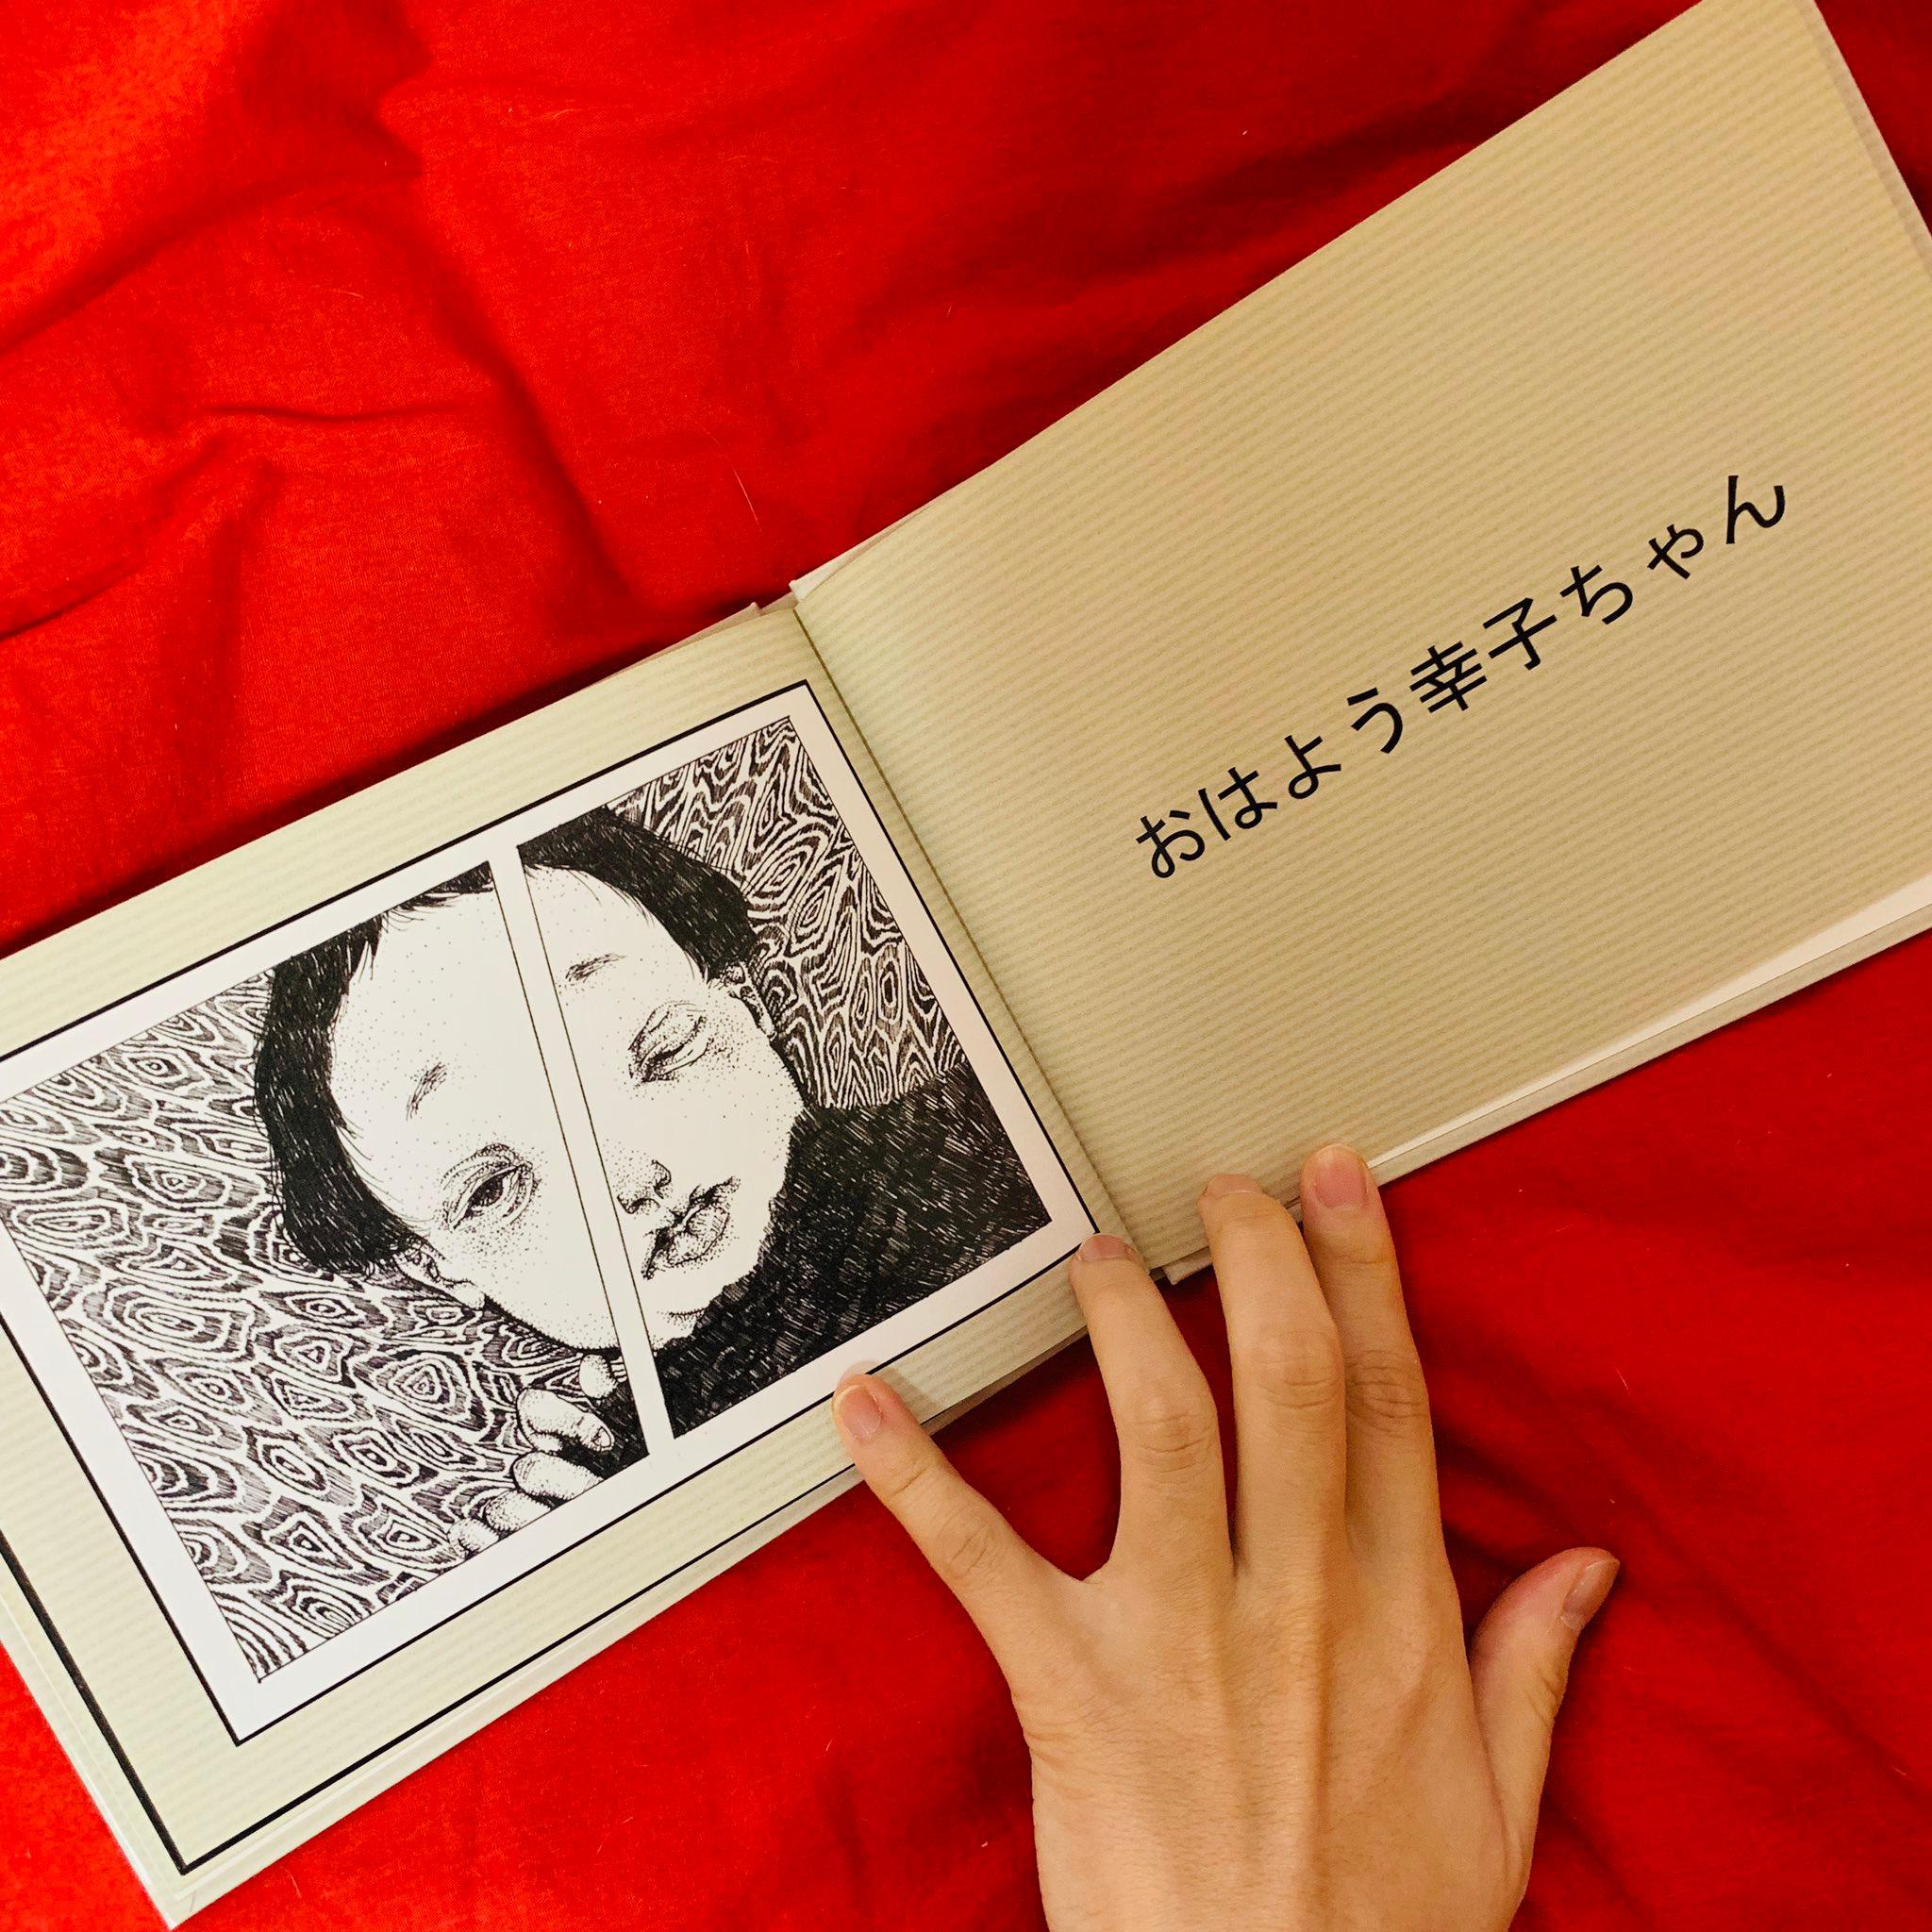 おはよう幸子ちゃん